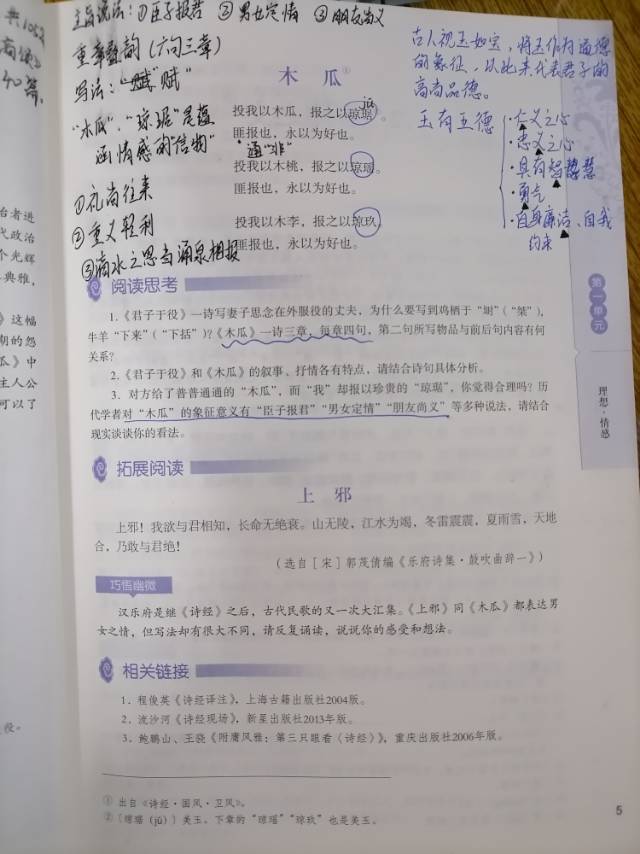 主旨说法：①臣子报君 ②男女定情 ③朋友尚义
重章叠韵（六句三章）
写法："赋"
"木瓜"、"琼琚"是蕴
涵情感的"信物"
①礼尚往来
②重义轻利
③滴水之恩当涌泉相报
古人视玉如宝，将玉作为道德
的象征，以此来代表君子的
高尚品德。
玉有五德
·仁义之心
·忠义之心
·具有智慧
·勇气
·自身廉洁、自我
约束
木 瓜①
jū
投我以木瓜，报之以琼琚②。
匪报也，永以为好也。
通"非"
投我以木桃，报之以琼瑶。
匪报也，永以为好也。
投我以木李，报之以琼玖。
匪报也，永以为好也。
阅读思考
1.《君子于役》一诗写妻子思念在外服役的丈夫，为什么要写到鸡栖于"埘"（"桀"），
牛羊"下来"（"下括"）？《木瓜》一诗三章，每章四句，第二句所写物品与前后句内容有何
关系？
2.《君子于役》和《木瓜》的叙事、抒情各有特点，请结合诗句具体分析。
3. 对方给了普普通通的"木瓜"，而"我"却报以珍贵的"琼琚"，你觉得合理吗？历
代学者对"木瓜"的象征意义有"臣子报君""男女定情""朋友尚义"等多种说法，请结合
现实谈谈你的看法。
拓展阅读
上 邪
上邪！我欲与君相知，长命无绝衰。山无陵，江水为竭，冬雷震震，夏雨雪，天地
合，乃敢与君绝！
（选自［宋］郭茂倩编《乐府诗集·鼓吹曲辞一》）
巧悟幽微
汉乐府是继《诗经》之后，古代民歌的又一次大汇集。《上邪》同《木瓜》都表达男
女之情，但写法却有很大不同，请反复诵读，说说你的感受和想法。
相关链接
1. 程俊英《诗经译注》，上海古籍出版社2004版。
2. 流沙河《诗经现场》，新星出版社2013年版。
3. 鲍鹏山、王骁《附庸风雅：第三只眼看〈诗经〉》，重庆出版社2006年版。
① 出自《诗经·国风·卫风》。
②［琼琚（jū）］美玉。下章的"琼瑶""琼玖"也是美玉。
5
第一单元
理想·情感
治者进
代政治
个光辉
典雅，
》这幅
期的怨
瓜》中
主人公
可以了
役。